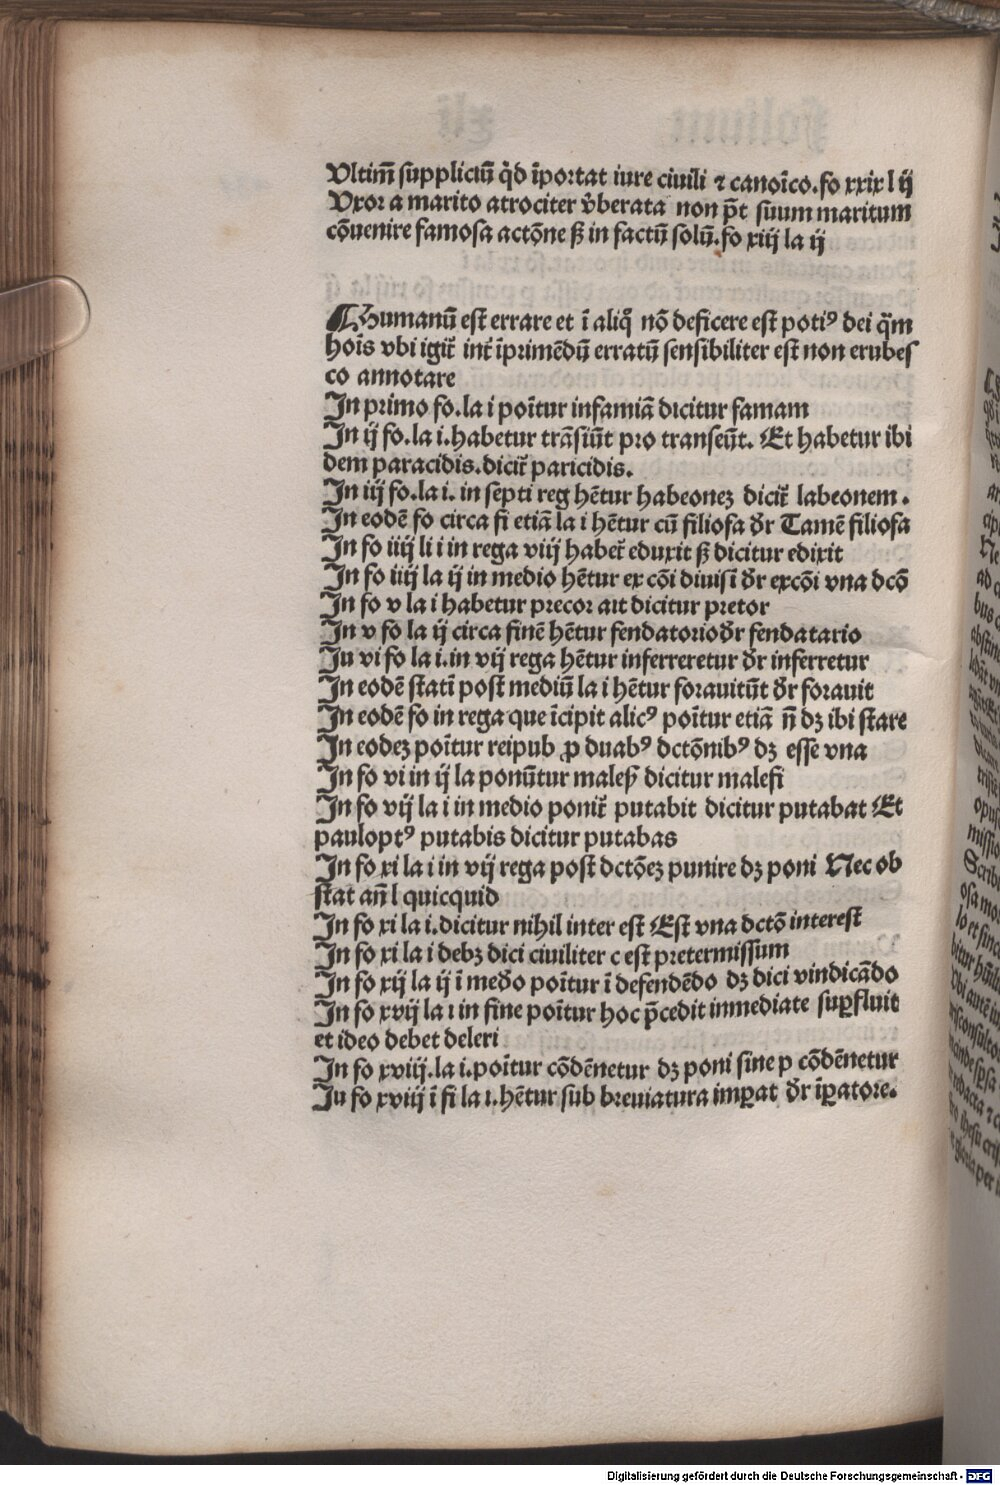 Vltim̄ suppliciū q̇d īportat iure ciuili ⁊ canoīco. fo xxix l ij
Vxor a marito atrociter v̇berata non p̄t suum maritum
cōuenire famosa actōne ꝭ in factū solū. fo xiij la ij
Humanū est errare et ī aliq̊ nō deficere est potiꝰ dei q̄m
hoīs vbi igit̄ int̄ īprimēdū erratū sensibiliter est non erubes
co annotare
In primo fo. la i poītur infamiā dicitur famam
In ij fo. la i. habetur trāsiūt pro transeūt. Et habetur ibi
dem paracidis. dicit̄ paricidis.
In iij fo. la i. in septi reg hētur habeoneꝫ dicit̄ labeonem.
In eodē fo circa fi etiā la i hētur cū filiofa dr̄ Tamē filiosa
In fo iiij li i in rega viij habet̄ eduxit ꝭ dicitur edixit
In fo iiij la ij in medio hētur ex cōi diuisī dr̄ excōi vna dcō
In fo v la i habetur precor ait dicitur pretor
In v fo la ij circa finē hētur fendatorio dr̄ fendatario
Iu vi fo la i. in vij rega hētur inferreretur dr̄ inferretur
In eodē statī post mediū la i hētur forauitūt dr̄ forauit
In eodē fo in rega que īcipit alicꝰ poītur etiā n̄ dꝫ ibi stare
In eodeꝫ poītur reipub ꝓ duabꝰ dctōnibꝰ dꝫ esse vna
In fo vi in ij la ponūtur malefꝭ dicitur malefi
In fo vij la i in medio ponit̄ putabit dicitur putabat Et
paulo ptꝰ putabis dicitur putabas
In fo xi la i in vij rega post dctōeꝫ punire dꝫ poni Nec ob
stat an̄ l quicquid
In fo xi la i. dicitur nihil inter est Est vna dctō interest
In fo xi la i debꝫ dici ciuiliter c est pretermissum
In fo xij la ij ī medo poītur ī defendēdo dꝫ dici vindicādo
In fo xvij la ı in fine poītur hoc p̄cedit inmediate suꝑfluit
et ideo debet deleri
In fo xviij. la i. poītur cōdēnetur dꝫ poni sine p cōdēnetur
Iu fo xviij ī fi la ı. hētur sub breuiatura imꝑat dr̄ īꝑatore.
Digitalisierung gefördert durch die Deutsche Forschungsgemeinschaft - DFG